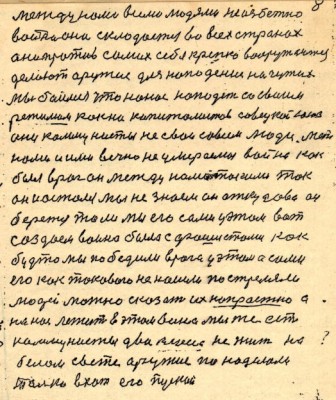 8
между нами всеми людями неизбежно
война она складоется во всех странах
они против самих себя крепко вооружаются
делают оружие для нападения на чужих
мы баймся что на нас нападет со своим
режимам как на капиталистов советской
они коммунисты не свои совсем люди. меж
нами и ими вечно не умерами война как
был враг он между нами таким так
он и остался мы не знаем он откудова он
берется то ли мы его сами у этом вот
создаем война была с фрашистами как
будто мы победили врага у этом а сами
его как такового не нашли постреляли
людей можно сказать их напрастно а
на нас лежит в этом вина мы же есть
коммунисты два не жит на ?
белом свете оружие то наделали
только в ход его пускай